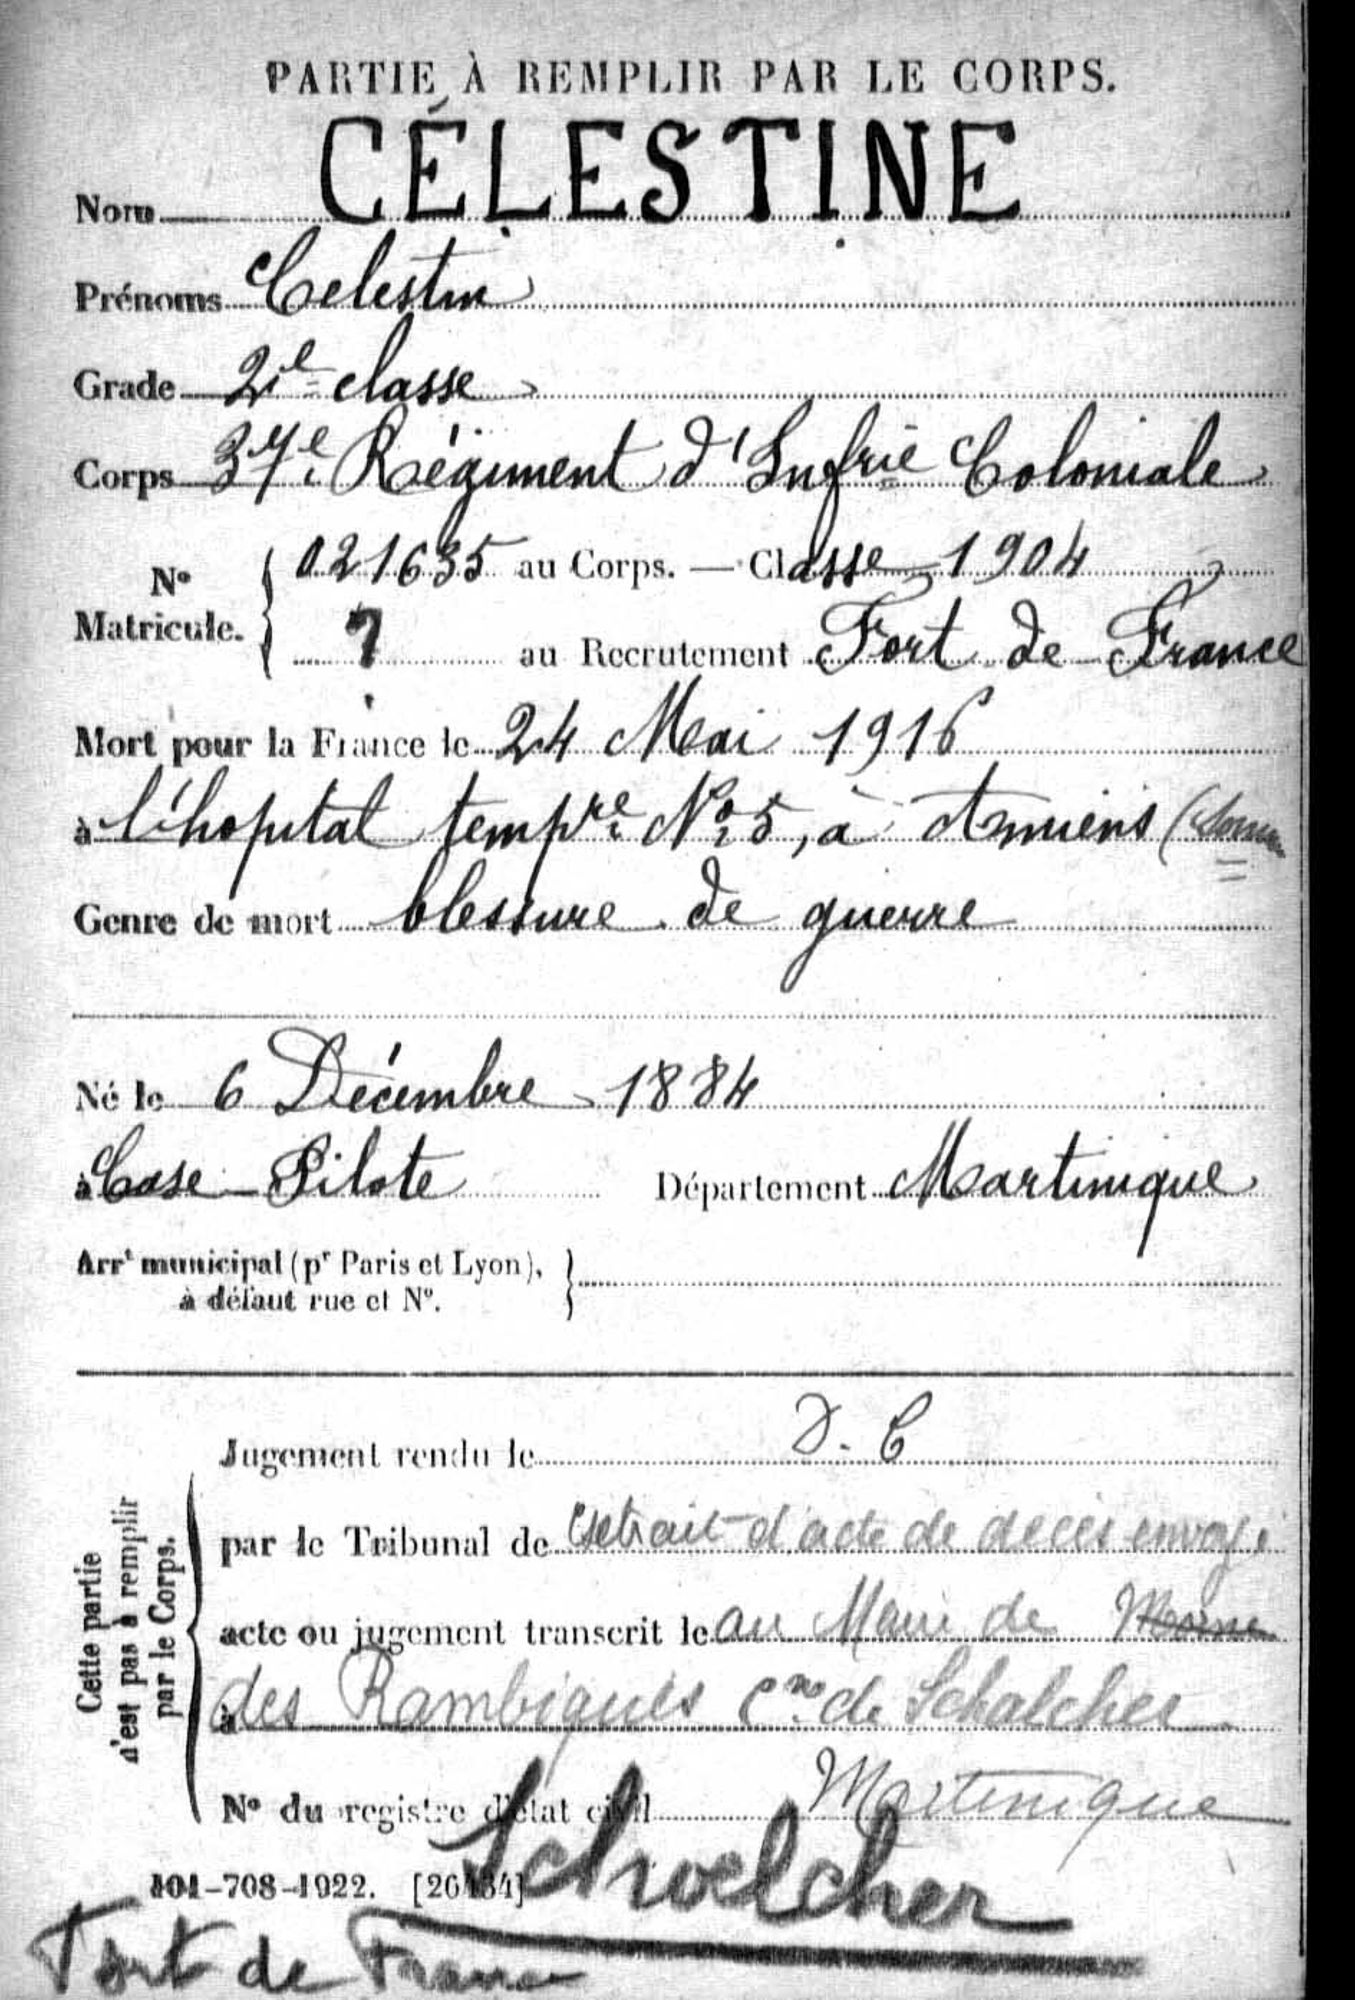 PARTIE À REMPLIR PAR LE CORPS.
Nom CÉLESTINE
Prénoms Celestin
Grade 2ie classe
Corps 37e Régiment d'Infrie Coloniale
N° Matricule. { 021635 au Corps. — Classe 1904
7 au Recrutement Fort de France
Mort pour la France le 24 Mai 1916
à l'hopital tempre No 5, à Amiens (Somme
Genre de mort blessure de guerre
Né le 6 Décembre 1884
à Case-Pilote Département Martinique
Arrt municipal (pr Paris et Lyon), }
à défaut rue et N°.
Cette partie
n'est pas à remplir
par le Corps.
Jugement rendu le D. C
par le Tribunal de extrait d'acte de décès envoyé
acte ou jugement transcrit le au Maire de Morne
à des Rambiques cne de Schalcher
N° du registre d'état civil Martinique
101-708-1922. [26434] Schoelcher
Fort de France